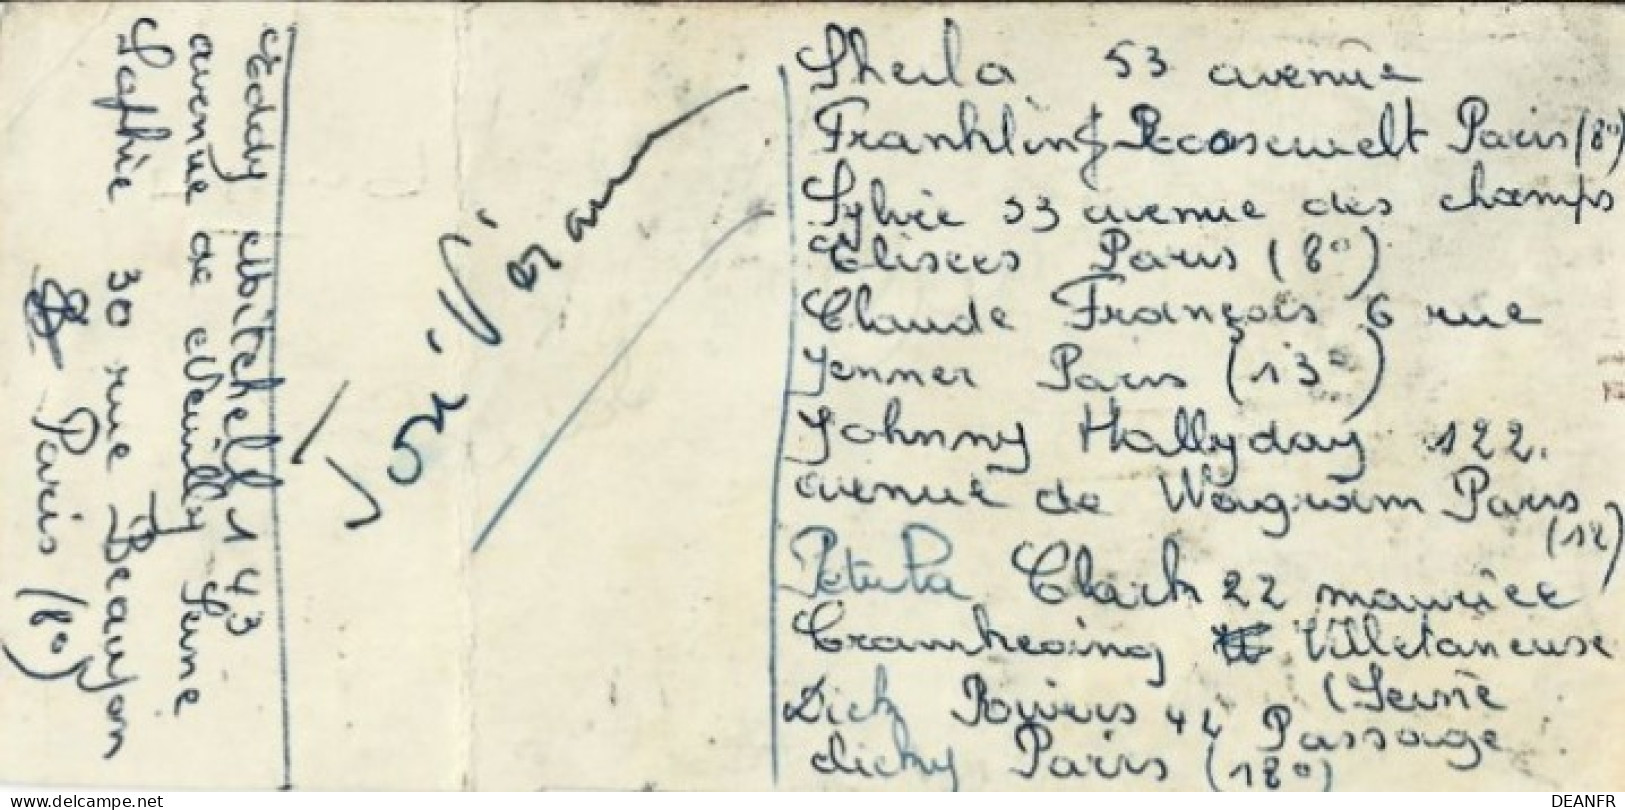 Eddy Mitchell 143
avenue de Neuilly Seine
Sophie 30 rue Beaujon
Paris (8°)
Sheila 53 avenue
Franklin Roosewelt Paris (8°)
Sylvie 53 avenue des champs
Elisees Paris (8°)
Claude François 6 rue
Jenner Paris (13°)
Johnny Hallyday 122.
avenue de Wagram Paris
(12)
Petula Clark 22 maurice
Villetaneuse
(Seine
Dick Rivers 42 Passage
clichy Paris (18°)
DELCAMPE.COM
DEANFR